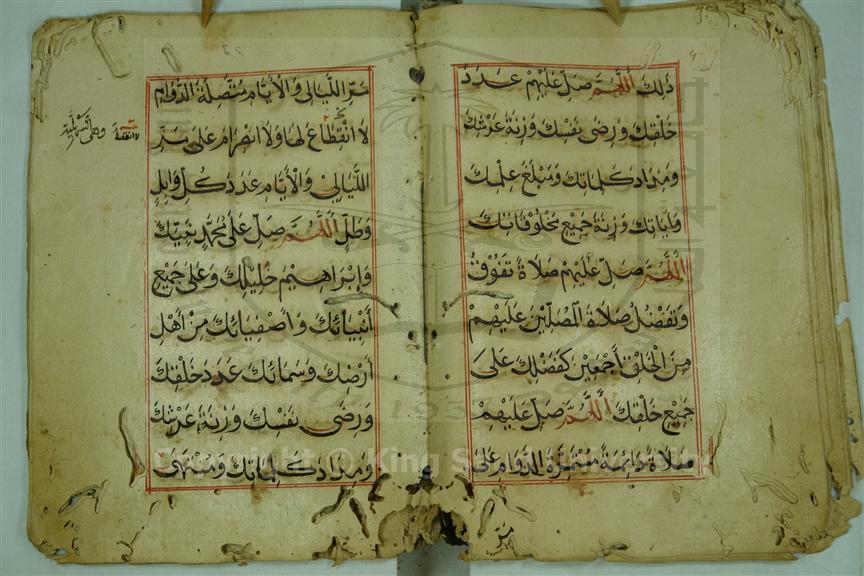 ذٰلِكَ اَللّٰهُمَّ صَلِّ عَلَيْهِمْ عَدَدَ
خَلْقِكَ وَرِضَى نَفْسِكَ وَزِنَةَ عَرْشِكَ
وَمِدَادَ كَلِمَاتِكَ وَمَبْلَغَ عِلْمِكَ
وَاٰيَاتِكَ وَزِنَةَ جَمِيْعِ مَخْلُوْقَاتِكَ
اَللّٰهُمَّ صَلِّ عَلَيْهِمْ صَلَاةً تَفُوْقُ
وَتَفْضُلُ صَلَاةَ الْمُصَلِّيْنَ عَلَيْهِمْ
مِنَ الْخَلْقِ اَجْمَعِيْنَ كَفَضْلِكَ عَلَى
جَمِيْعِ خَلْقِكَ اَللّٰهُمَّ صَلِّ عَلَيْهِمْ
صَلَاةً دَائِمَةً مُسْتَمِرَّةَ الدَّوَامِ عَلَى
مَرِّ
مَرِّ اللَّيَالِى وَالْاَيَّامِ مُتَّصِلَةَ الدَّوَامِ
لَا انْقِطَاعَ لَهَا وَلَا انْصِرَامَ عَلَى مَرِّ
اللَّيَالِيْ وَالْاَيَّامِ عَدَدَ كُلِّ وَابِلٍ
وَطَلٍّ اَللّٰهُمَّ صَلِّ عَلَى مُحَمَّدٍ نَبِيِّكَ
وَاِبْرَاهِيْمَ خَلِيْلِكَ وَعَلَى جَمِيْعِ
اَنْبِيَائِكَ وَاَصْفِيَائِكَ مِنْ اَهْلِ
اَرْضِكَ وَسَمَائِكَ عَدَدَ خَلْقِكَ
وَرِضَى نَفْسِكَ وَزِنَةَ عَرْشِكَ
وَمِدَادَ كَلِمَاتِكَ وَمُنْتَهَى